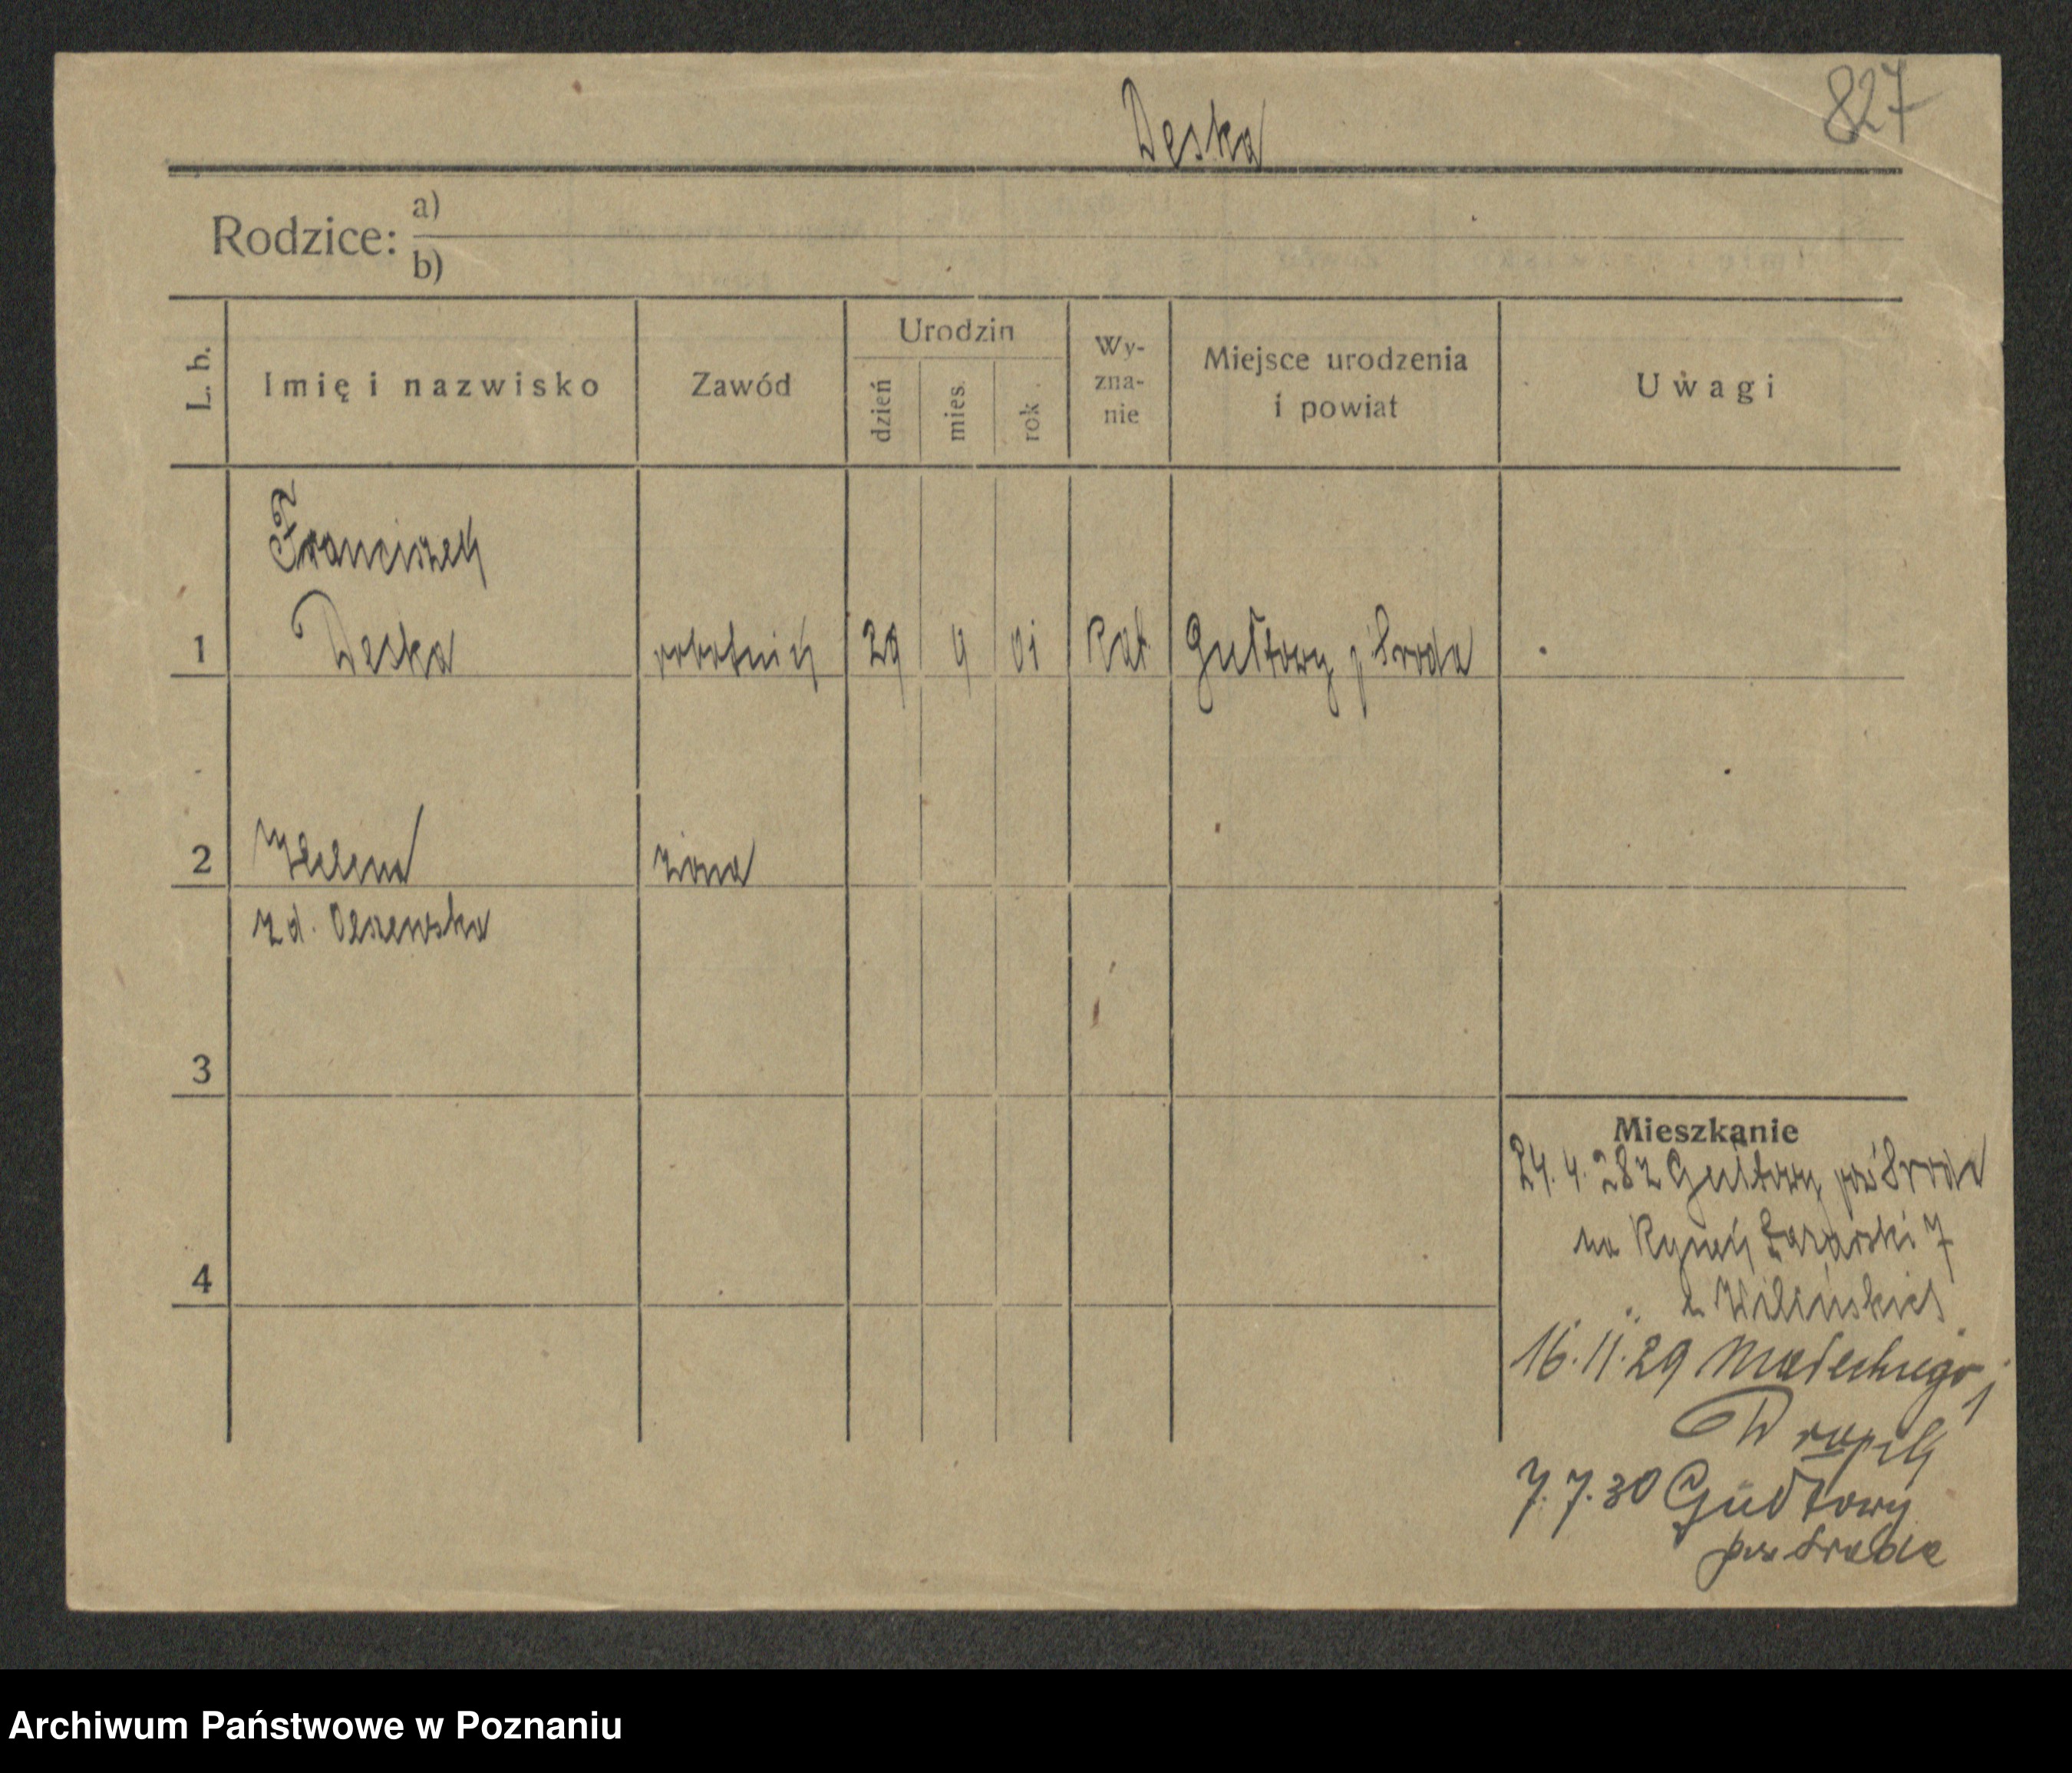 827
Deska
Rodzice: a)
b)
L. b.
Imię i nazwisko
Zawód
Urodzin
dzień
mies.
rok
Wy-
zna-
nie
Miejsce urodzenia
i powiat
Uwagi
Franciszek
1 Deska robotnik 29 9 01 Kat Gułtowy p Środa
2 Helena żona
z d. Olszewska
3
4
Mieszkanie
24.4.28 z Gułtowy pow Środa
na Rynek Łazarski 7
u Wilińskich
16.11.29 Małeckiego
7.7.30 Gułtowy
pow Środa
Archiwum Państwowe w Poznaniu